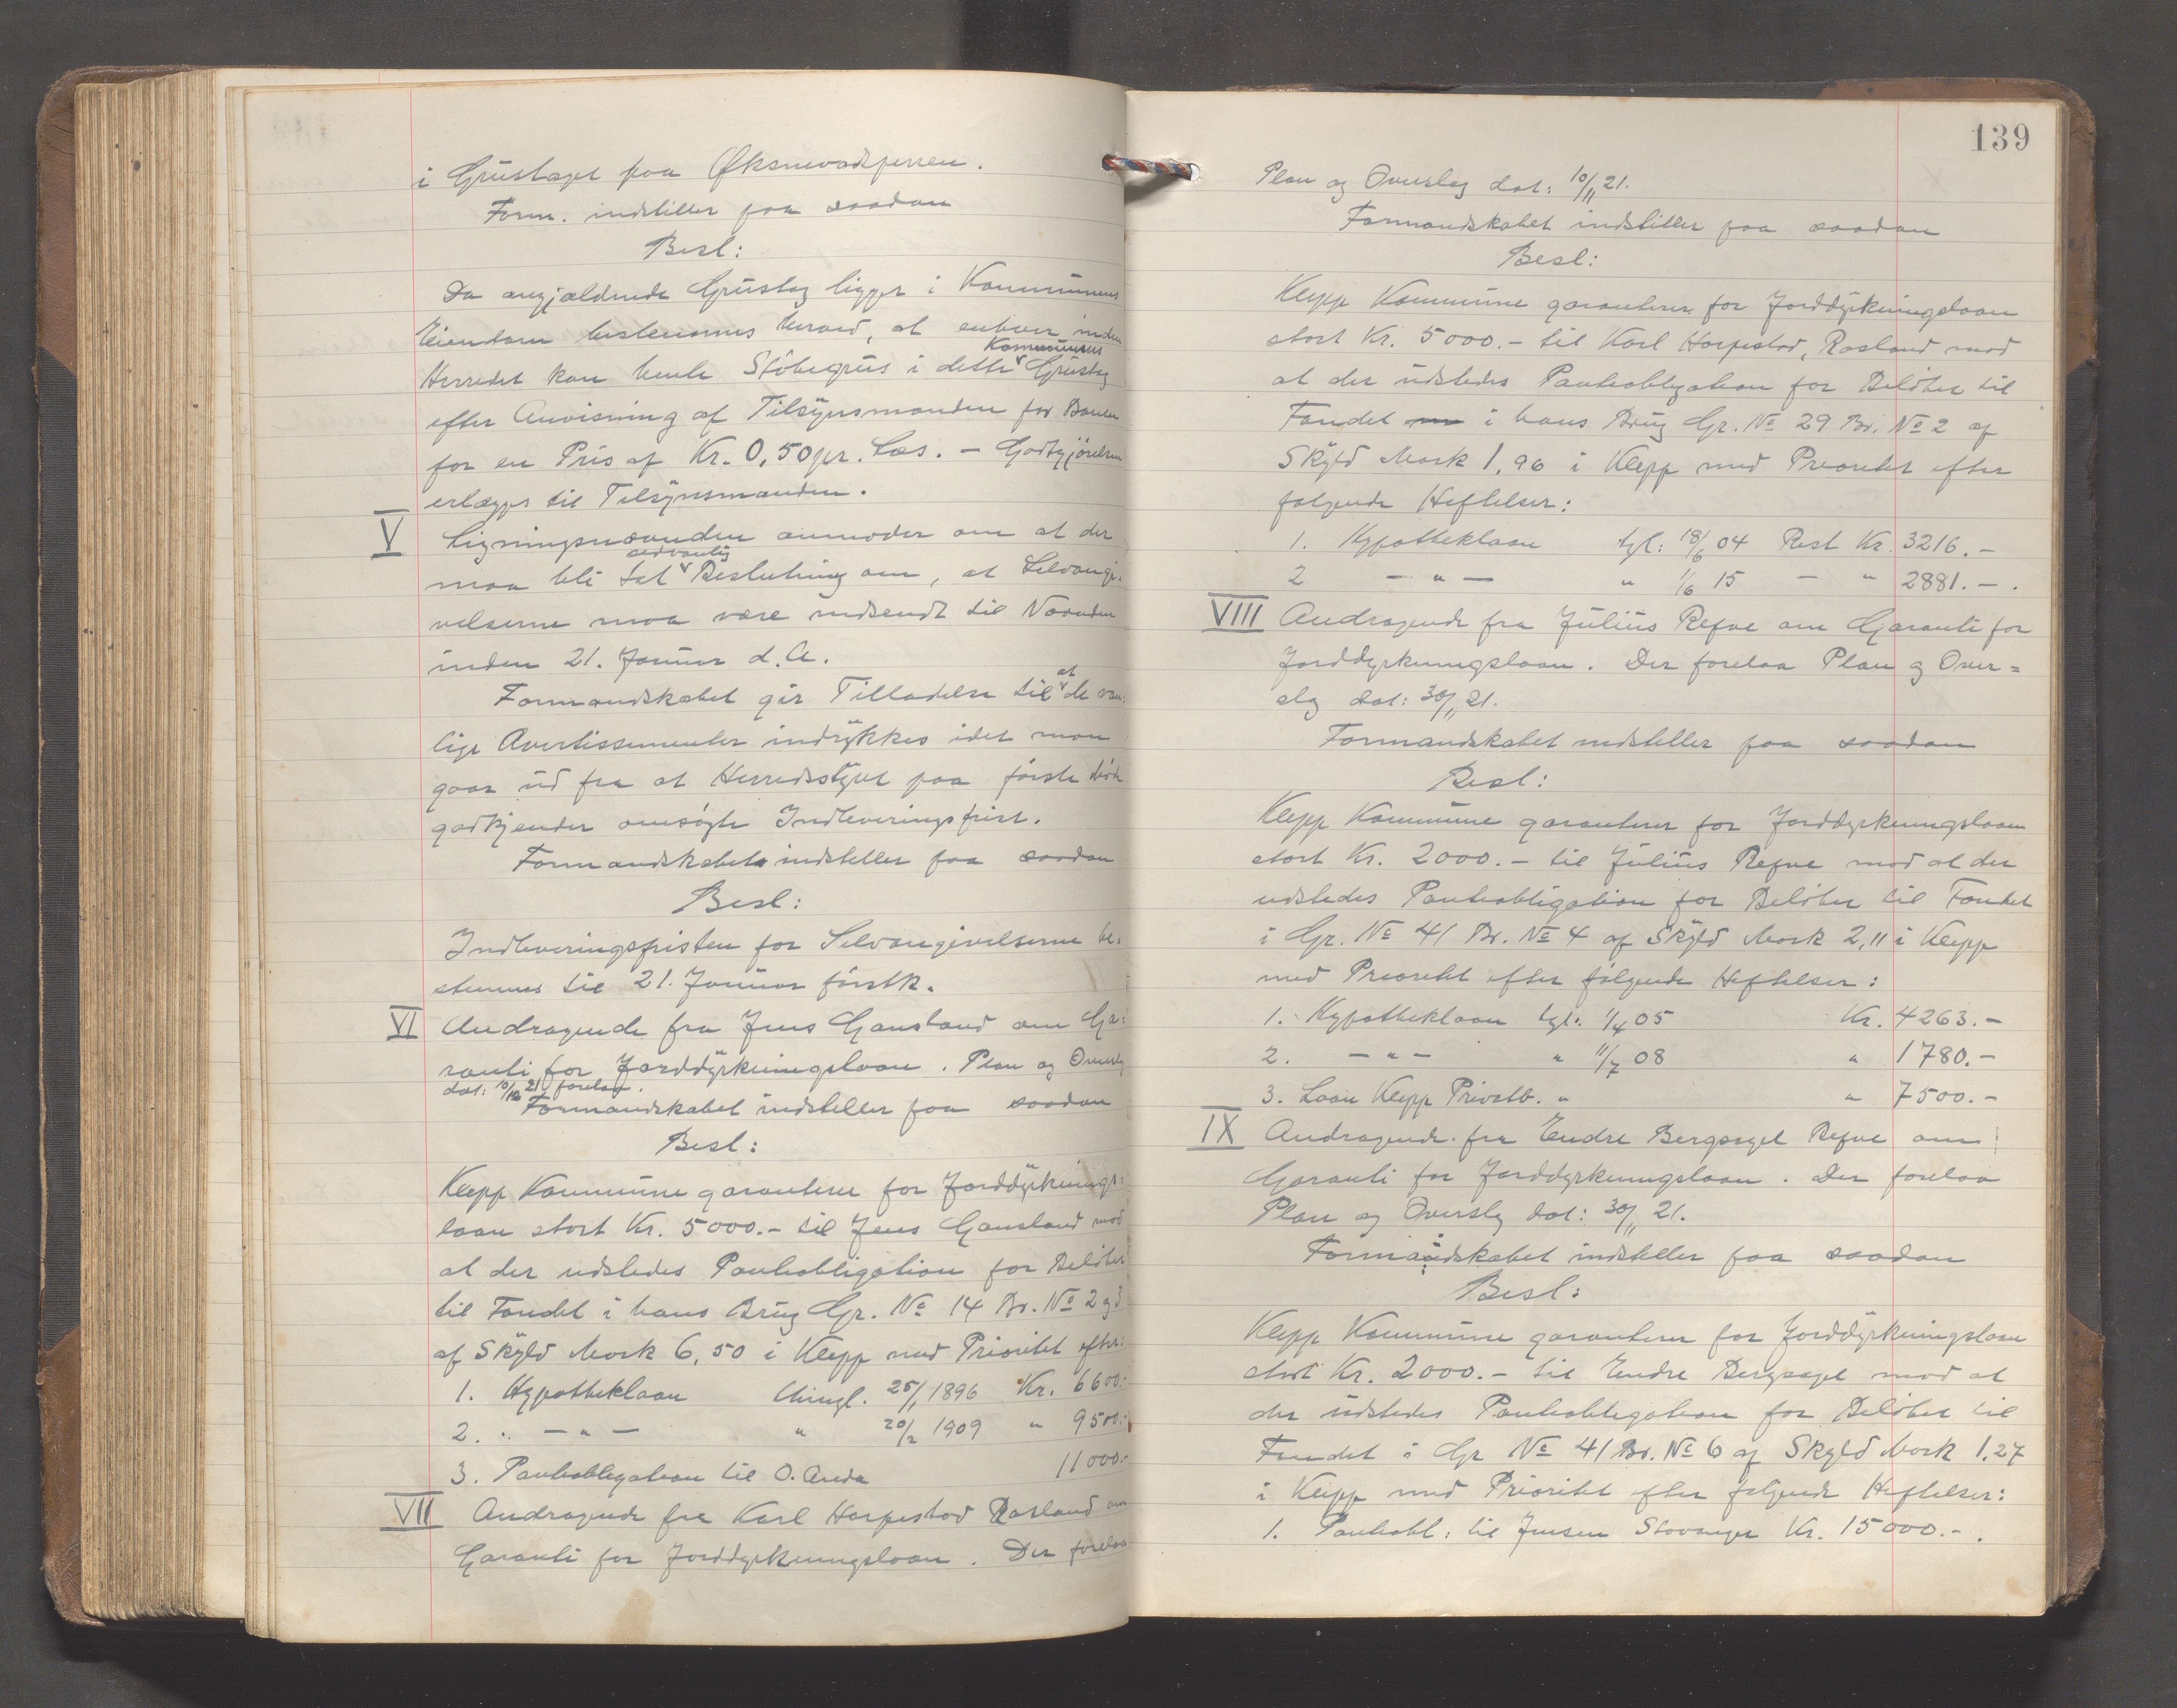 i Grustaget paa Øksnevadporren.
Form. indstiller paa saadan
Besl:
Da angjældende Grustag ligger i Kommunens
Eiendom bestemmes herved, at enhver inden
Herredet kan hente Støbegrus i dette Kommunens Grustag
efter Anvisning af Tilsynsmanden for Banen
for en Pris af Kr. 0,50 pr. Læs. – Godtgjørelsen
erlægges til Tilsynsmanden.
V Ligningsnævnden anmoder om at der
maa bli tat Beslutning om, at Selvangi-
velserne maa være indsendt til Nævnden
inden 21. Januar d.A.
Formandskabet gir Tilladelse til at de van-
lige Avertissementer indrykkes idet man
gaar ud fra at Herredsstyret paa første Møde
godkjender omsøgte Indleveringsfrist.
Formandskabet indstiller paa saadan
Besl:
Indleveringsfristen for Selvangivelserne be-
stemmes til 21. Januar førstk.
VI Andragende fra Jens Gausland om Ga-
ranti for Jorddyrkningslaan. Plan og Overslag
dat: 10/12 21 forelaa.
Formandskabet indstiller paa saadan
Besl:
Klepp Kommune garanterer for Jorddyrknings-
laan stort Kr. 5000.- til Jens Gausland mod
at der udstedes Panteobligation for Beløbet
til Fondet i hans Brug Gr. No 14 Br. No 2 og 3
af Skyld Mark 6,50 i Klepp med Prioritet efter:
1. Hypotheklaan thingl. 25/1 1896 Kr. 6600.-
2. - " - " 20/2 1909 " 9500.-
3. Panteobligation til O. Anda 11000.-
VII Andragende fra Karl Harpestad Rosland om
Garanti for Jorddyrkningslaan. Der forelaa
139
Plan og Overslag dat: 10/11 21.
Formandskabet indstiller paa saadan
Besl:
Klepp Kommune garanterer for Jorddyrkningslaan
stort Kr. 5000.- til Karl Harpestad, Rosland mod
at der udstedes Panteobligation for Beløbet til
Fondet i hans Brug Gr. No 29 Br. No 2 af
Skyld Mark 1,96 i Klepp med Prioritet efter
følgende Heftelser:
1. Hypotheklaan tgl: 18/6 04 Rest Kr. 3216.-
2 - " - " 1/6 15 - " 2881.-.
VIII Andragende fra Julius Refve om Garanti for
Jorddyrkningslaan. Der forelaa Plan og Over=
slag dat: 30/11 21.
Formandskabet indstiller paa saadan
Besl:
Klepp Kommune garanterer for Jorddyrkningslaan
stort Kr. 2000.- til Julius Refve mod at der
udstedes Panteobligation for Beløbet til Fondet
i Gr. No 41 Br. No 4 af Skyld Mark 2,11 i Klepp
med Prioritet efter følgende Heftelser:
1. Hypotheklaan tgl: 1/4 05 Kr. 4263.-
2. - " - " 11/7 08 " 1780.-
3. Laan Klepp Privatb. " " 7500.-
IX Andragende fra Endre Bergsagel Refve om
Garanti for Jorddyrkningslaan. Der forelaa
Plan og Overslag dat: 30/11 21.
Formandskabet indstiller paa saadan
Besl:
Klepp Kommune garanterer for Jorddyrkningslaan
stort Kr. 2000.- til Endre Bergsagel mod at
der udstedes Panteobligation for Beløbet til
Fondet i Gr No 41 Br. No 6 af Skyld Mark 1.27
i Klepp med Prioritet efter følgende Heftelser:
1. Panteobl: til Jensen Stavanger Kr. 15000.-.